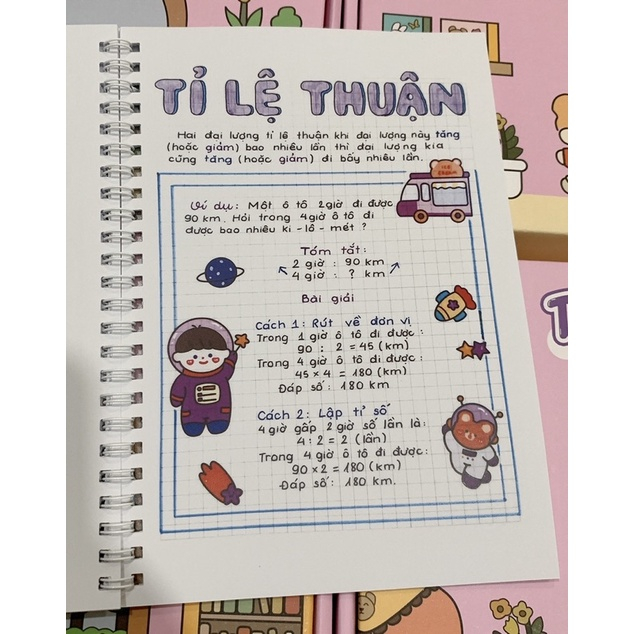 TỈ LỆ THUẬN
Hai đại lượng tỉ lệ thuận khi đại lượng này tăng
(hoặc giảm) bao nhiêu lần thì đại lượng kia
cũng tăng (hoặc giảm) đi bấy nhiêu lần.
ICE CREAM
Ví dụ: Một ô tô 2 giờ đi được
90 km. Hỏi trong 4 giờ ô tô đi
được bao nhiêu ki - lô - mét ?
Tóm tắt:
2 giờ : 90 km
4 giờ : ? km
Bài giải
Cách 1: Rút về đơn vị
Trong 1 giờ ô tô đi được :
90 : 2 = 45 (km)
Trong 4 giờ ô tô đi được:
45 × 4 = 180 (km)
Đáp số: 180 km
Cách 2: Lập tỉ số
4 giờ gấp 2 giờ số lần là:
4 : 2 = 2 (lần)
Trong 4 giờ ô tô đi được:
90 × 2 = 180 (km)
Đáp số: 180 km.
T